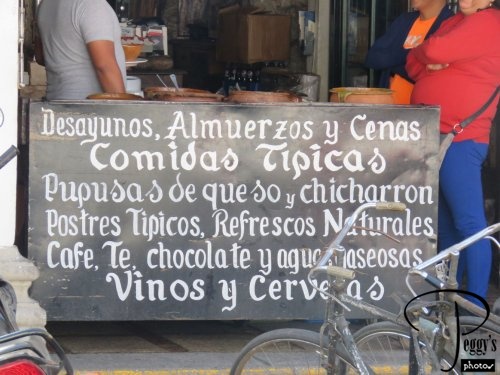 Desayunos, Almuerzos y Cenas
Comidas Tipicas
Pupusas de queso y chicharron
Postres Tipicos, Refrescos Naturales
Cafe, Te, chocolate y aguas gaseosas
Vinos y Cervezas
Peggy's
photos